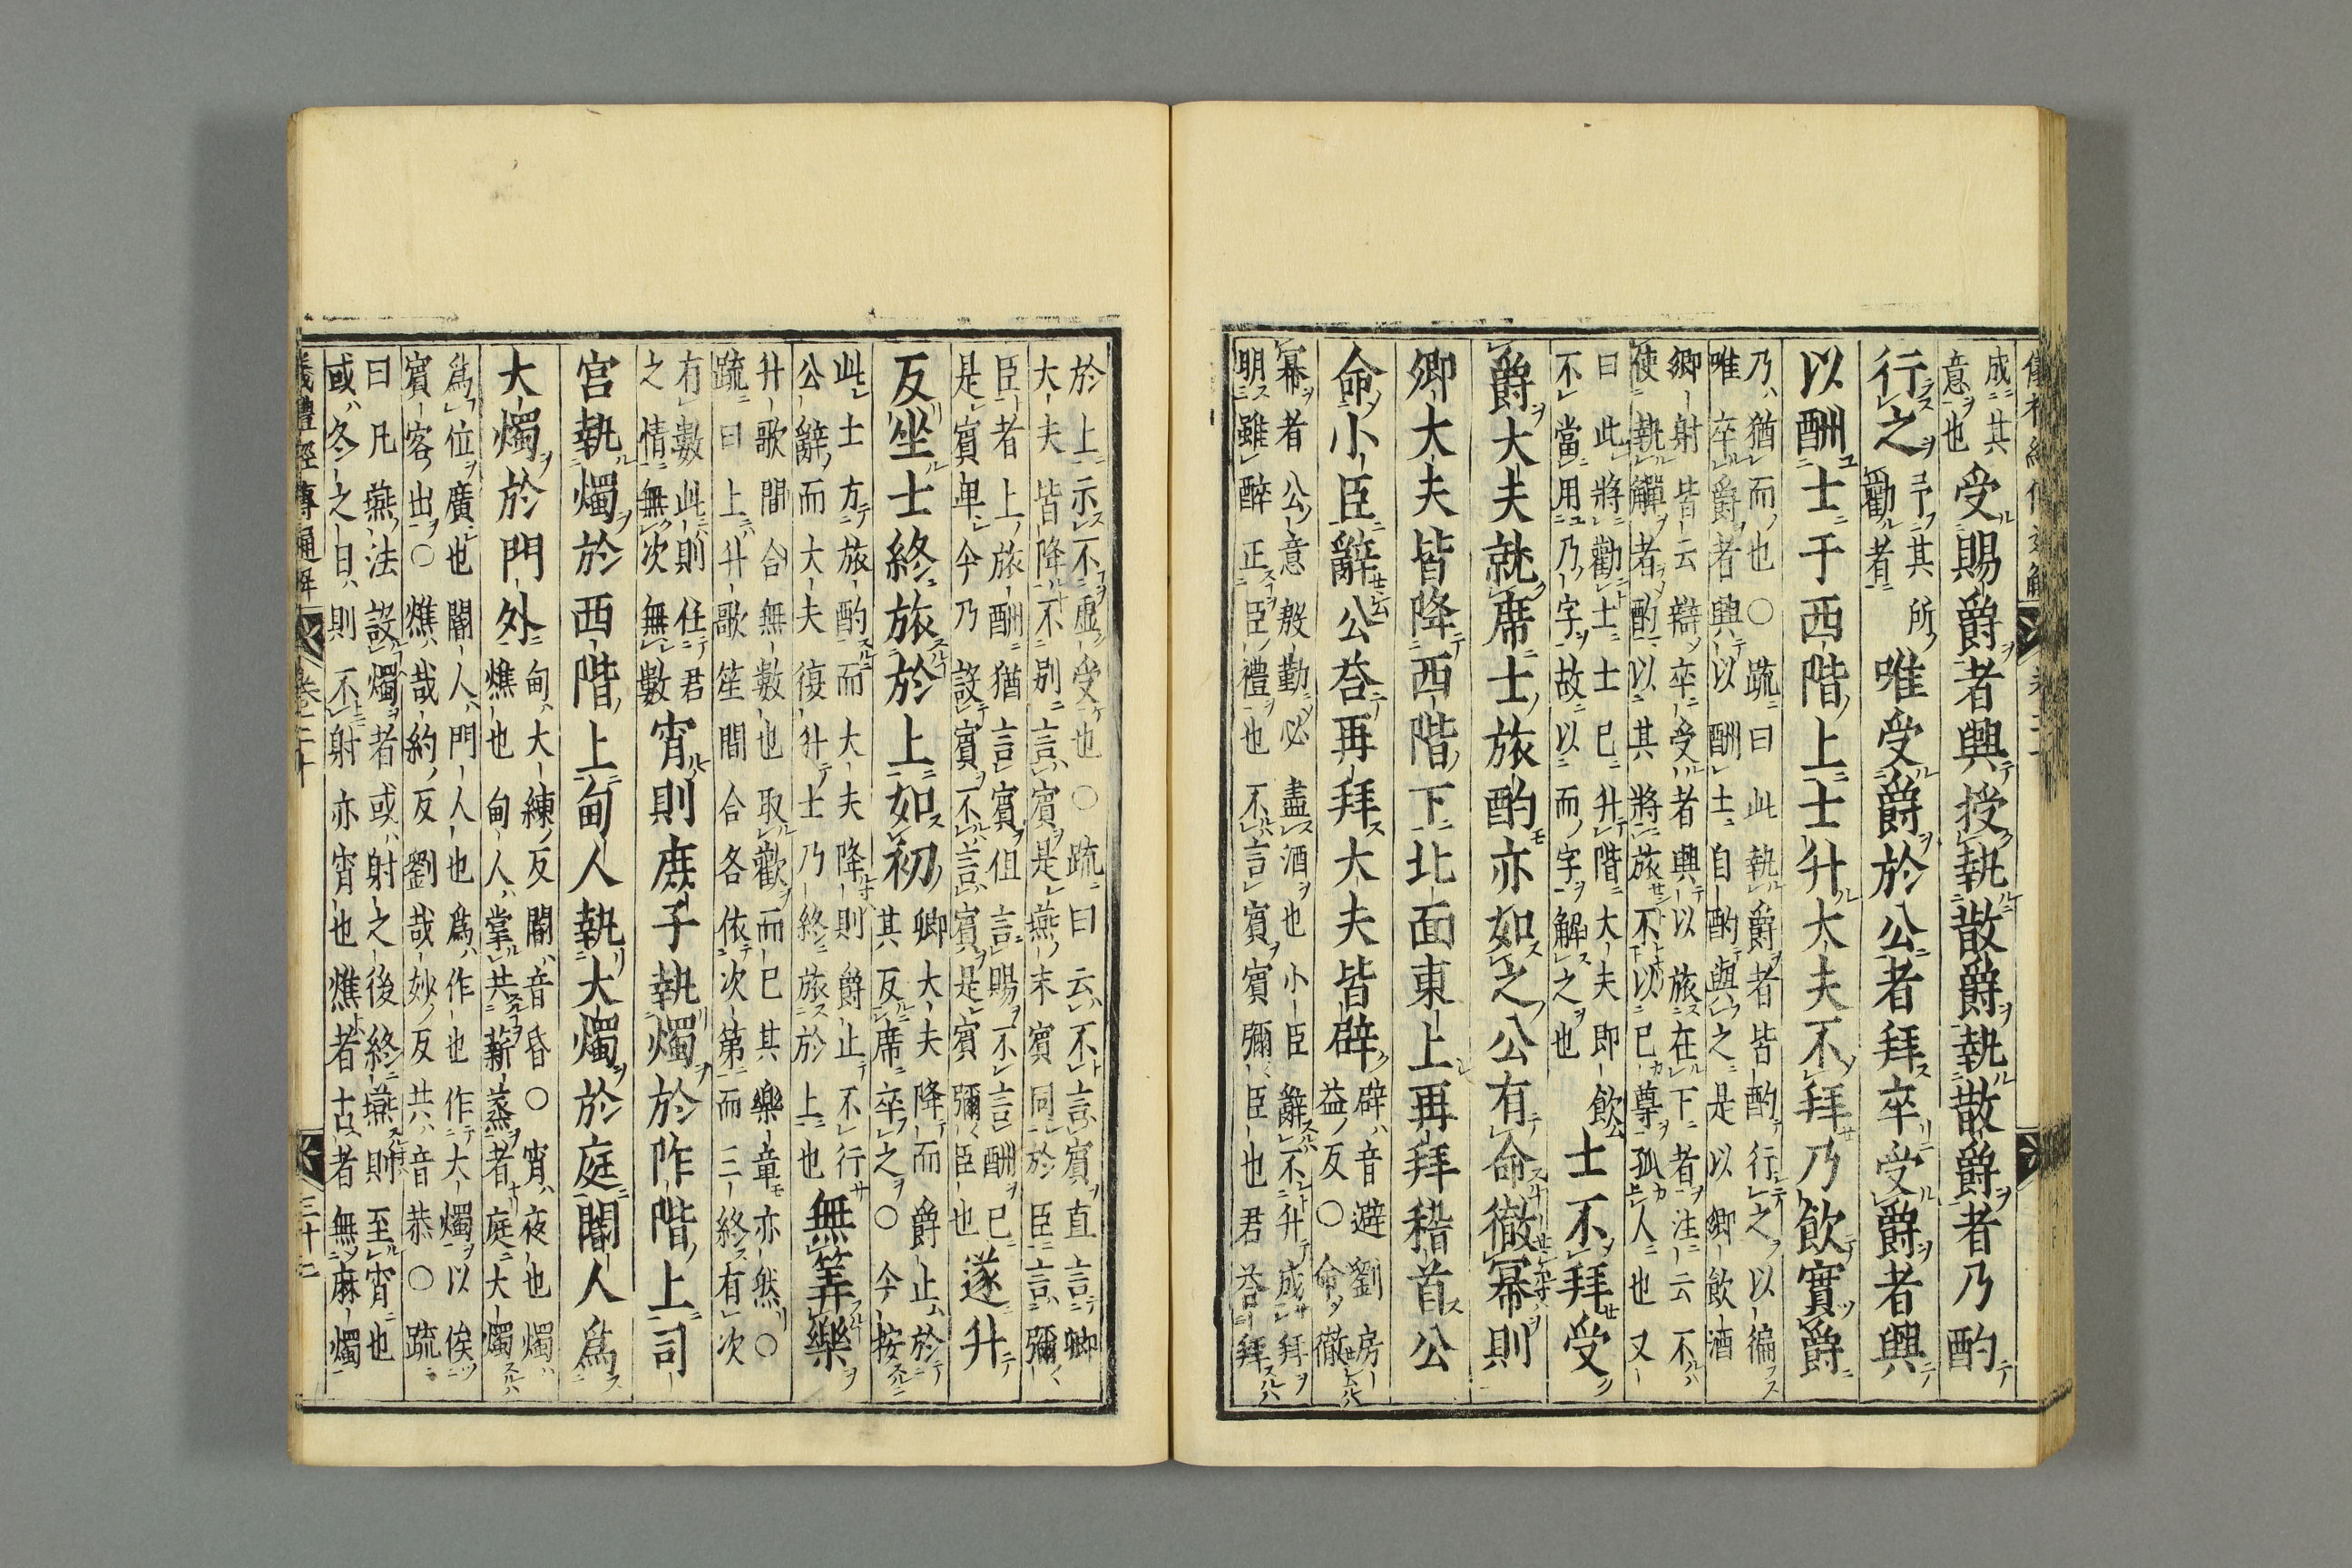 成其
意也受賜爵者興授執散爵執散爵者乃酌
行之予其所
勸者唯受爵於公者拜卒受爵者興
以酬士于西階上士升大夫不拜乃飲實爵
乃猶而也○疏曰此執爵者皆酌行之以徧
唯卒爵者興以酬士自酌與之是以卿飲酒
卿射皆云辯卒受者興以旅在下者注云不
使執觶者酌以其將旅不以已尊孤人也又
曰此將勸士士已升階大夫即飲
不當用乃字故以而字解之也士不拜受
爵大夫就席士旅酌亦如之公有命徹冪則
卿大夫皆降西階下北面東上再拜稽首公
命小臣辭公荅再拜大夫皆辟辟音避劉房
益反○命徹
冪者公意殷勤必盡酒也小臣辭不升成拜
明雖醉正臣禮也不言賓賓彌臣也君荅拜
於上示不虛受也○疏曰云不言賓直言卿
大夫皆降不別言賓是燕末賓同於臣言彌
臣者上旅酬猶言賓但言賜不言酬已
是賓卑今乃設賓不言賓是賓彌臣也遂升
反坐士終旅於上如初卿大夫降而爵止於
其反席卒之○今按
此士方旅酌而大夫降則爵止不行
公辭而大夫復升士乃終旅於上也無筭樂
升歌間合無數也取歡而已其樂章亦然○
疏曰上升歌笙間合各依次第而三終有次
有數此則任君
之情無次無數宵則庶子執燭於阼階上司
宮執燭於西階上甸人執大燭於庭閽人爲
大燭於門外甸大練反閽音昏○宵夜也燭
燋也甸人掌共薪蒸者庭大燭
爲位廣也閽人門人也爲作也作大燭以俟
賓客出○燋哉約反劉哉妙反共音恭○疏
曰凡燕法設燭者或射之後終燕則至宵也
或冬之日則不射亦宵也燋者古者無麻燭
儀禮經傳通解 卷二十 三十二